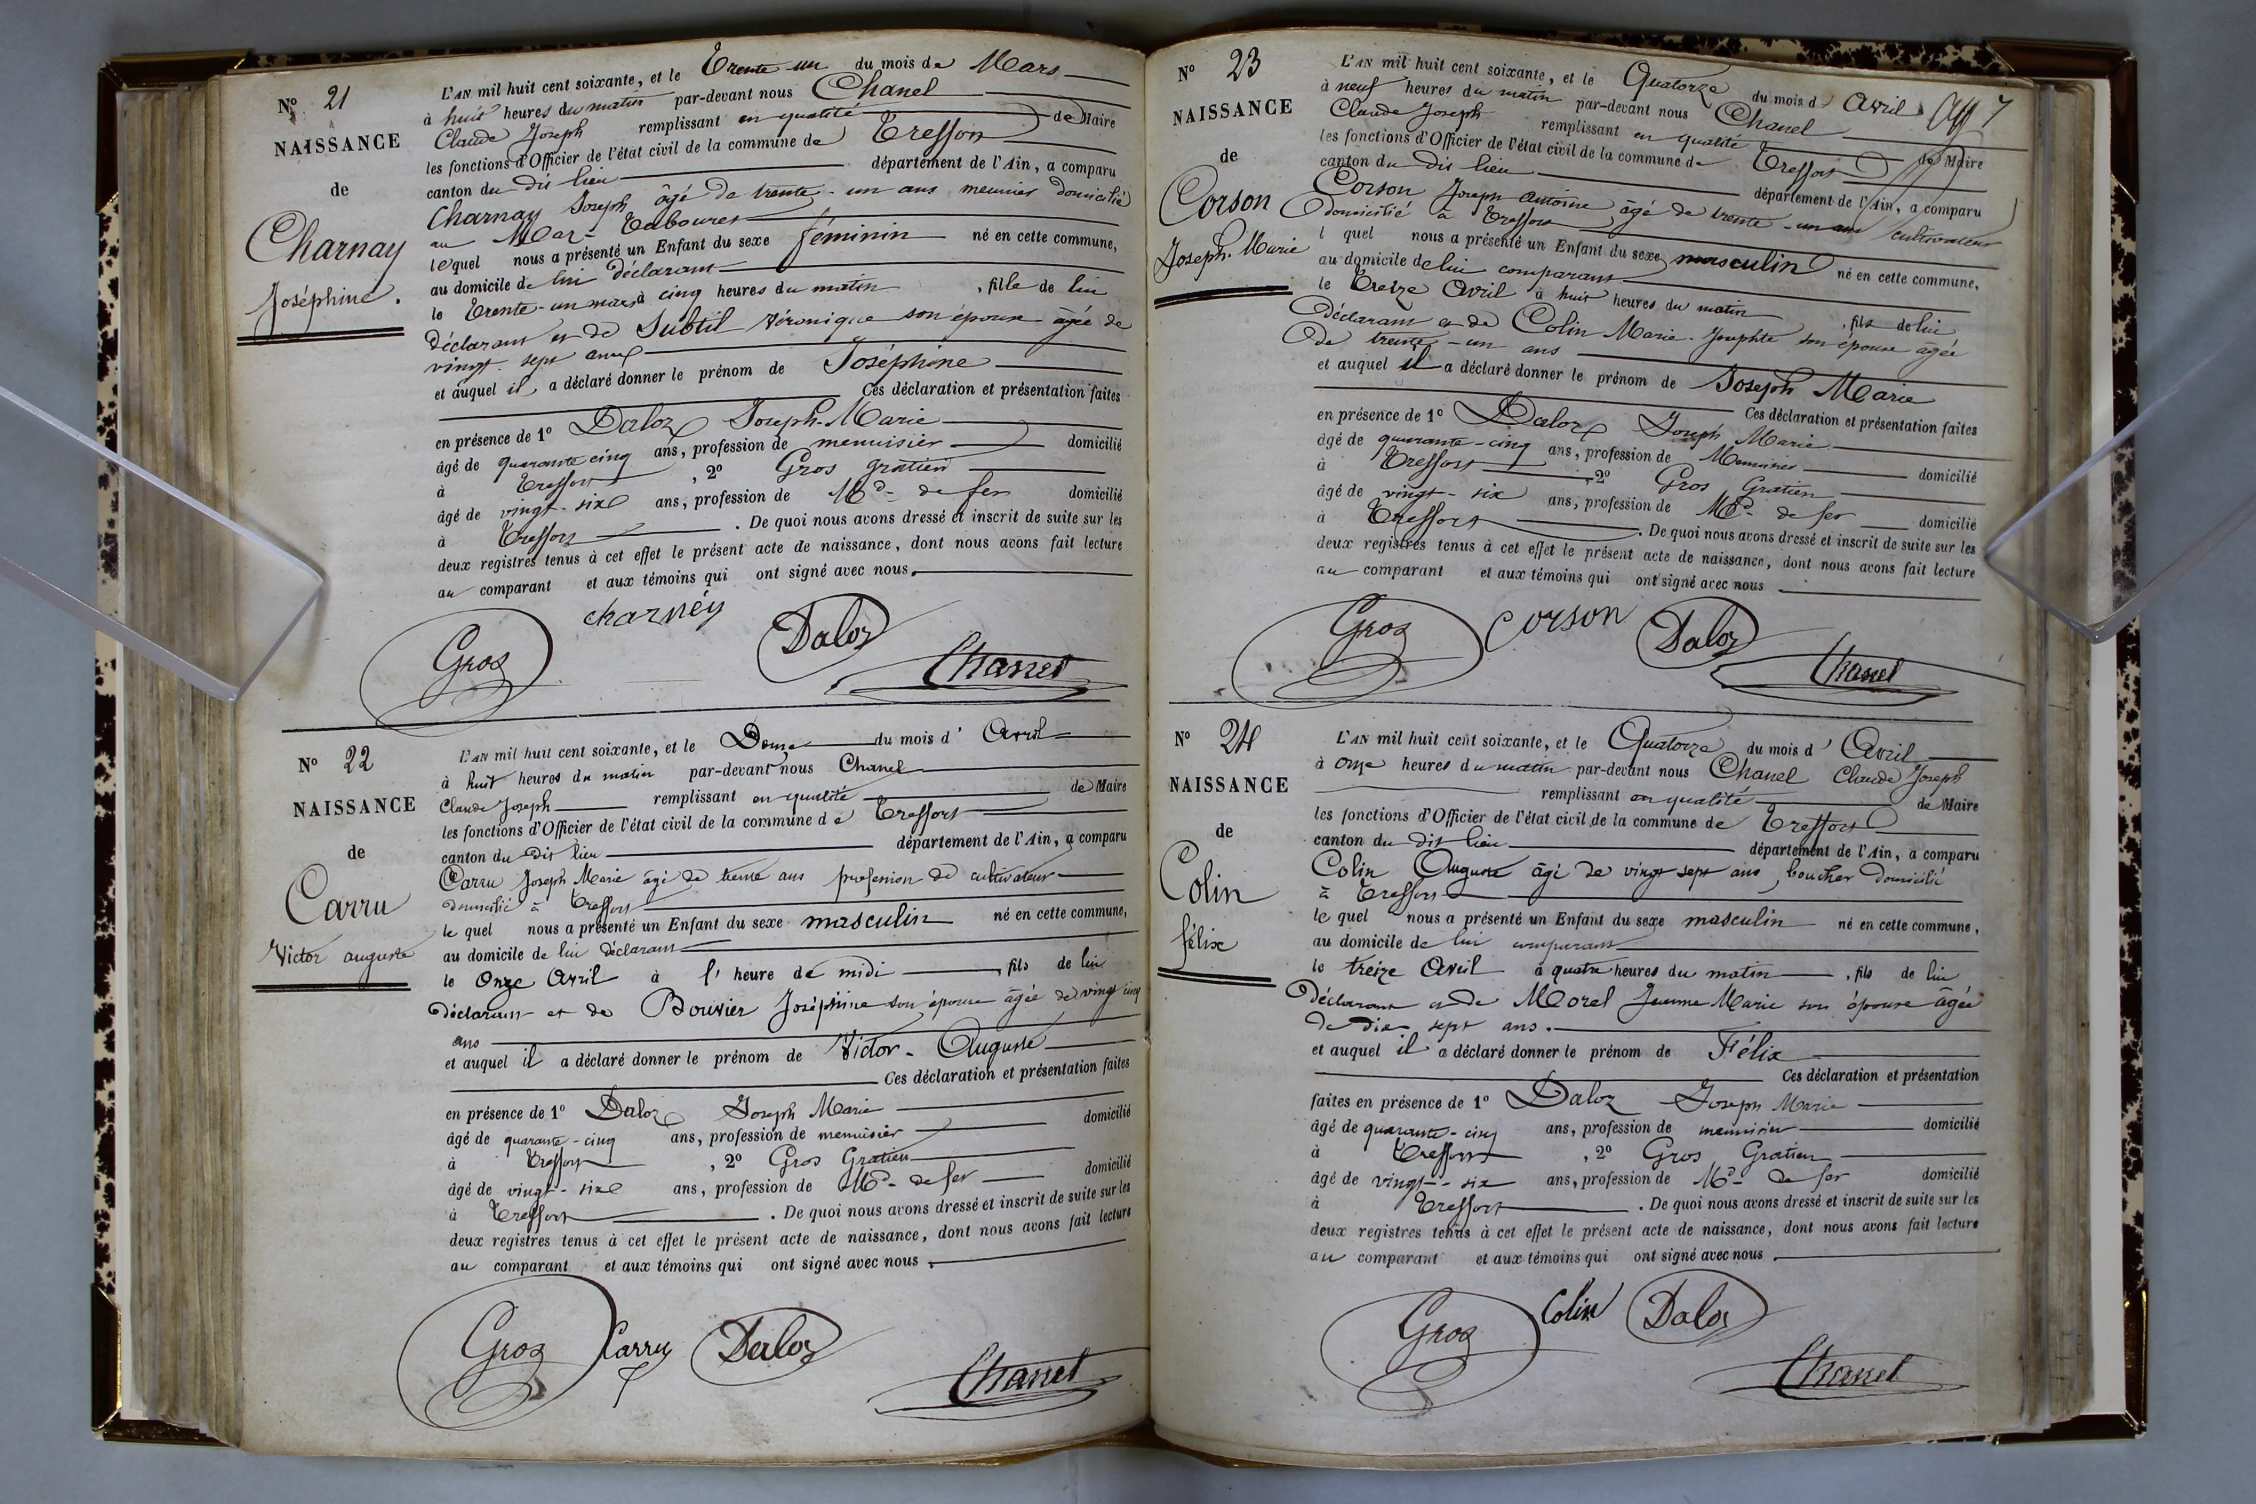 N.º 21
NAISSANCE
de
Charnay
Joséphine.
L'AN mil huit cent soixante, et le Trente-un du mois de Mars
à huit heures du matin par-devant nous Chanel
Claude Joseph remplissant en qualité de Maire
les fonctions d'Officier de l'état civil de la commune de Treffort
canton du dit lieu département de l'Ain, a comparu
Charnay Joseph âgé de trente-un ans meunier domicilié
au
lequel nous a présenté un Enfant du sexe féminin né en cette commune,
au domicile de lui déclarant
le Trente-un mars à cinq heures du matin, fille de lui
déclarant et de Subtil Véronique son épouse âgée de
vingt-sept ans
et auquel il a déclaré donner le prénom de Joséphine
Ces déclaration et présentation faites
en présence de 1º Daloz Joseph-Marie
âgé de quarante cinq ans, profession de menuisier domicilié
à Treffort, 2º Gros gratien
âgé de vingt-six ans, profession de Md de fer domicilié
à Treffort. De quoi nous avons dressé et inscrit de suite sur les
deux registres tenus à cet effet le présent acte de naissance, dont nous avons fait lecture
au comparant et aux témoins qui ont signé avec nous.
charnéy
Gros Daloz
Chanel
Nº 22
NAISSANCE
de
Carru
Victor auguste
L'AN mil huit cent soixante, et le Douze du mois d' Avril
à huit heures du matin par-devant nous Chanel
Claude Joseph remplissant en qualité de Maire
les fonctions d'Officier de l'état civil de la commune de Treffort
canton du dit lieu département de l'Ain, a comparu
Carru Joseph Marie âgé de trente ans profession de cultivateur
domicilié à Treffort
le quel nous a présenté un Enfant du sexe masculin né en cette commune,
au domicile de lui déclarant
le onze Avril à l' heure de midi, fils de lui
déclarant et de Bouvier Joséphine son épouse âgée de vingt cinq
ans
et auquel il a déclaré donner le prénom de Victor-Auguste
Ces déclaration et présentation faites
en présence de 1º Daloz Joseph Marie
âgé de quarante-cinq ans, profession de menuisier domicilié
à Treffort, 2º Gros Gratien
âgé de vingt-six ans, profession de Md de fer domicilié
à Treffort. De quoi nous avons dressé et inscrit de suite sur les
deux registres tenus à cet effet le présent acte de naissance, dont nous avons fait lecture
au comparant et aux témoins qui ont signé avec nous.
Gros Carru Daloz
Chanel
7
Nº 23
NAISSANCE
de
Corson
Joseph-Marie
L'AN mil huit cent soixante, et le Quatorze du mois d' Avril
à neuf heures du matin par-devant nous Chanel
Claude Joseph remplissant en qualité de Maire
les fonctions d'Officier de l'état civil de la commune de Treffort
canton du dit lieu département de l'Ain, a comparu
Corson Joseph Antoine âgé de trente-un ans cultivateur
domicilié à Treffort
l quel nous a présenté un Enfant du sexe masculin né en cette commune,
au domicile de lui comparant
le Treize Avril à huit heures du matin, fils de lui
Déclarant et de Colin Marie-Josephte son épouse âgée
de trente-un ans
et auquel il a déclaré donner le prénom de Joseph Marie
Ces déclaration et présentation faites
en présence de 1º Daloz Joseph Marie
âgé de quarante-cinq ans, profession de Menuisier domicilié
à Treffort, 2º Gros Gratien
âgé de vingt-six ans, profession de Md de fer domicilié
à Treffort. De quoi nous avons dressé et inscrit de suite sur les
deux registres tenus à cet effet le présent acte de naissance, dont nous avons fait lecture
au comparant et aux témoins qui ont signé avec nous
Gros Corson Daloz
Chanel
Nº 24
NAISSANCE
de
Colin
félix
L'AN mil huit cent soixante, et le Quatorze du mois d' Avril
à onze heures du matin par-devant nous Chanel Claude Joseph
remplissant en qualité de Maire
les fonctions d'Officier de l'état civil de la commune de Treffort
canton du dit lieu département de l'Ain, a comparu
Colin Auguste âgé de vingt sept ans, boucher domicilié
à Treffort
le quel nous a présenté un Enfant du sexe masculin né en cette commune,
au domicile de lui comparant
le treize Avril à quatre heures du matin, fils de lui
Déclarant et de Morel Jeanne Marie son épouse âgée
de dix sept ans.
et auquel il a déclaré donner le prénom de Félix
Ces déclaration et présentation
faites en présence de 1º Daloz Joseph Marie
âgé de quarante-cinq ans, profession de menuisier domicilié
à Treffort, 2º Gros Gratien
âgé de vingt-six ans, profession de Md de fer domicilié
à Treffort. De quoi nous avons dressé et inscrit de suite sur les
deux registres tenus à cet effet le présent acte de naissance, dont nous avons fait lecture
au comparant et aux témoins qui ont signé avec nous.
Gros Colin Daloz
Chanel